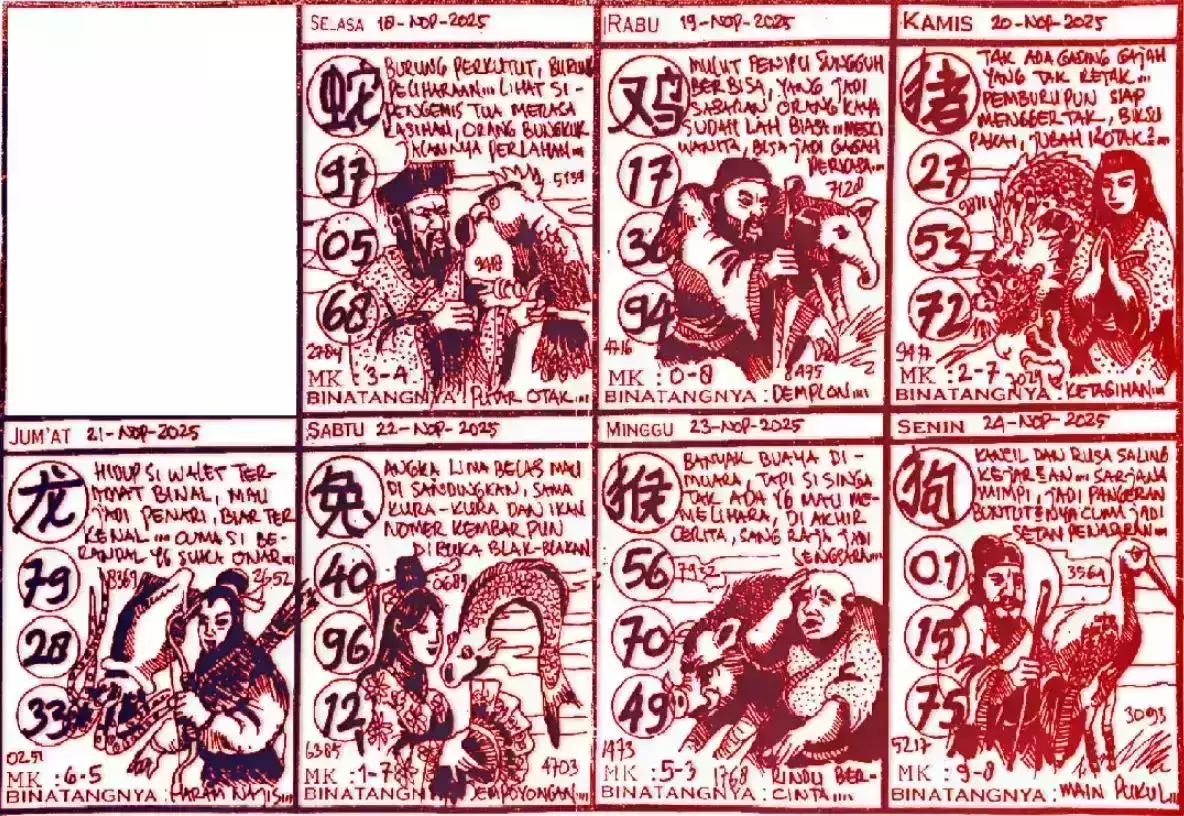 SELASA 18-NOP-2025
蛇
BURUNG PERKUTUT, BURUNG
PELIHARAAN... LIHAT SI-
PENGEMIS TUA MERASA
KASIHAN, ORANG BUNGKUK
JALANNYA PERLAHAN...
97
5139
05
9418
68
2784
MK : 3-4
BINATANGNYA : PUTAR OTAK...
RABU 19-NOP-2025
鸡
MULUT PENIPU SUNGGUH
BERBISA, YANG JADI
SASARAN ORANG KAYA
SUDAH LAH BIASA... MESKI
WANITA, BISA JADI GAGAH
PERKASA...
17
7128
36
94
4716
8495
MK : 0-8
BINATANGNYA : DEMPLON...
KAMIS 20-NOP-2025
猪
TAK ADA GADING GAJAH
YANG TAK RETAK...
PEMBURU PUN SIAP
MENGGERTAK, BIKSU
PAKAI, JUBAH KOTAK2...
27
53
72
MK : 2-7
BINATANGNYA : KETAGIHAN...
JUM'AT 21-NOP-2025
龙
HIDUP SI WALET TER-
AMAT BINAL, MAU
JADI PENARI, BIAR TER
KENAL... CUMA SI BE-
RANDAL YG SUKA ONAR...
79
8369
2652
28
33
0251
MK : 6-5
BINATANGNYA : HARAM NAJIS...
SABTU 22-NOP-2025
兔
ANGKA LIMA BELAS MAU
DI SANDINGKAN, SAMA
KURA-KURA DAN IKAN
NOMER KEMBAR PUN
DIBUKA BLAK-BLAKAN
40
0689
96
12
6385
4703
MK : 1-7
BINATANGNYA : SEMPOYONGAN...
MINGGU 23-NOP-2025
猴
BANYAK BUAYA DI-
MUARA, TAPI SI SINGA
TAK ADA YG MAU ME-
MELIHARA, DI AKHIR
CERITA, SANG RAJA JADI
SENGSARA...
56
7932
70
49
1473
1768
MK : 5-3
BINATANGNYA : RINDU BER-
CINTA...
SENIN 24-NOP-2025
狗
KANCIL DAN RUSA SALING
KEJAR2AN... SARJANA
MIMPI, JADI PANGERAN
BUNTUT2NYA CUMA JADI
SETAN PENASARAN...
01
3564
15
75
3093
5217
MK : 9-8
BINATANGNYA : MAIN PUKUL...